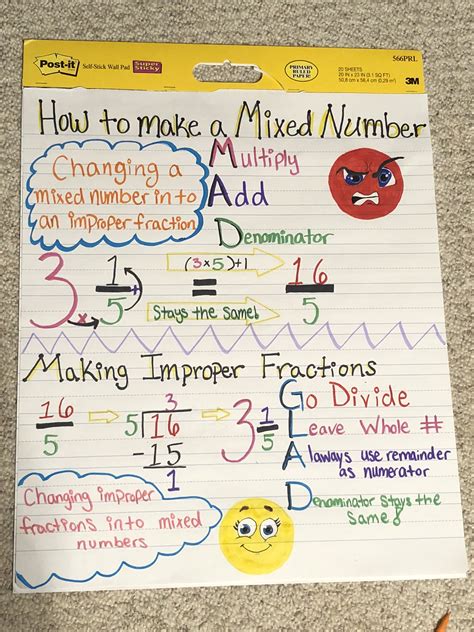 Post-it Self-Stick Wall Pad Super Sticky
PRIMARY RULED PAPER!
566PRL
20 SHEETS
20 IN x 23 IN (3.1 SQ FT)
50,8 cm x 58,4 cm (0,29 m²)
3M
How to make a Mixed Number
Changing a
mixed number in to
an improper fraction
Multiply
Add
Denominator
3 1/5 x +
(3x5)+1
=
Stays the Same!
16/5
Making Improper Fractions
16/5
3
5 16
-15
1
3 1/5
Go Divide
Leave Whole #
Alaways use remainder
as numerator
Denominator Stays the
Same!
Changing improper
fractions into mixed
numbers